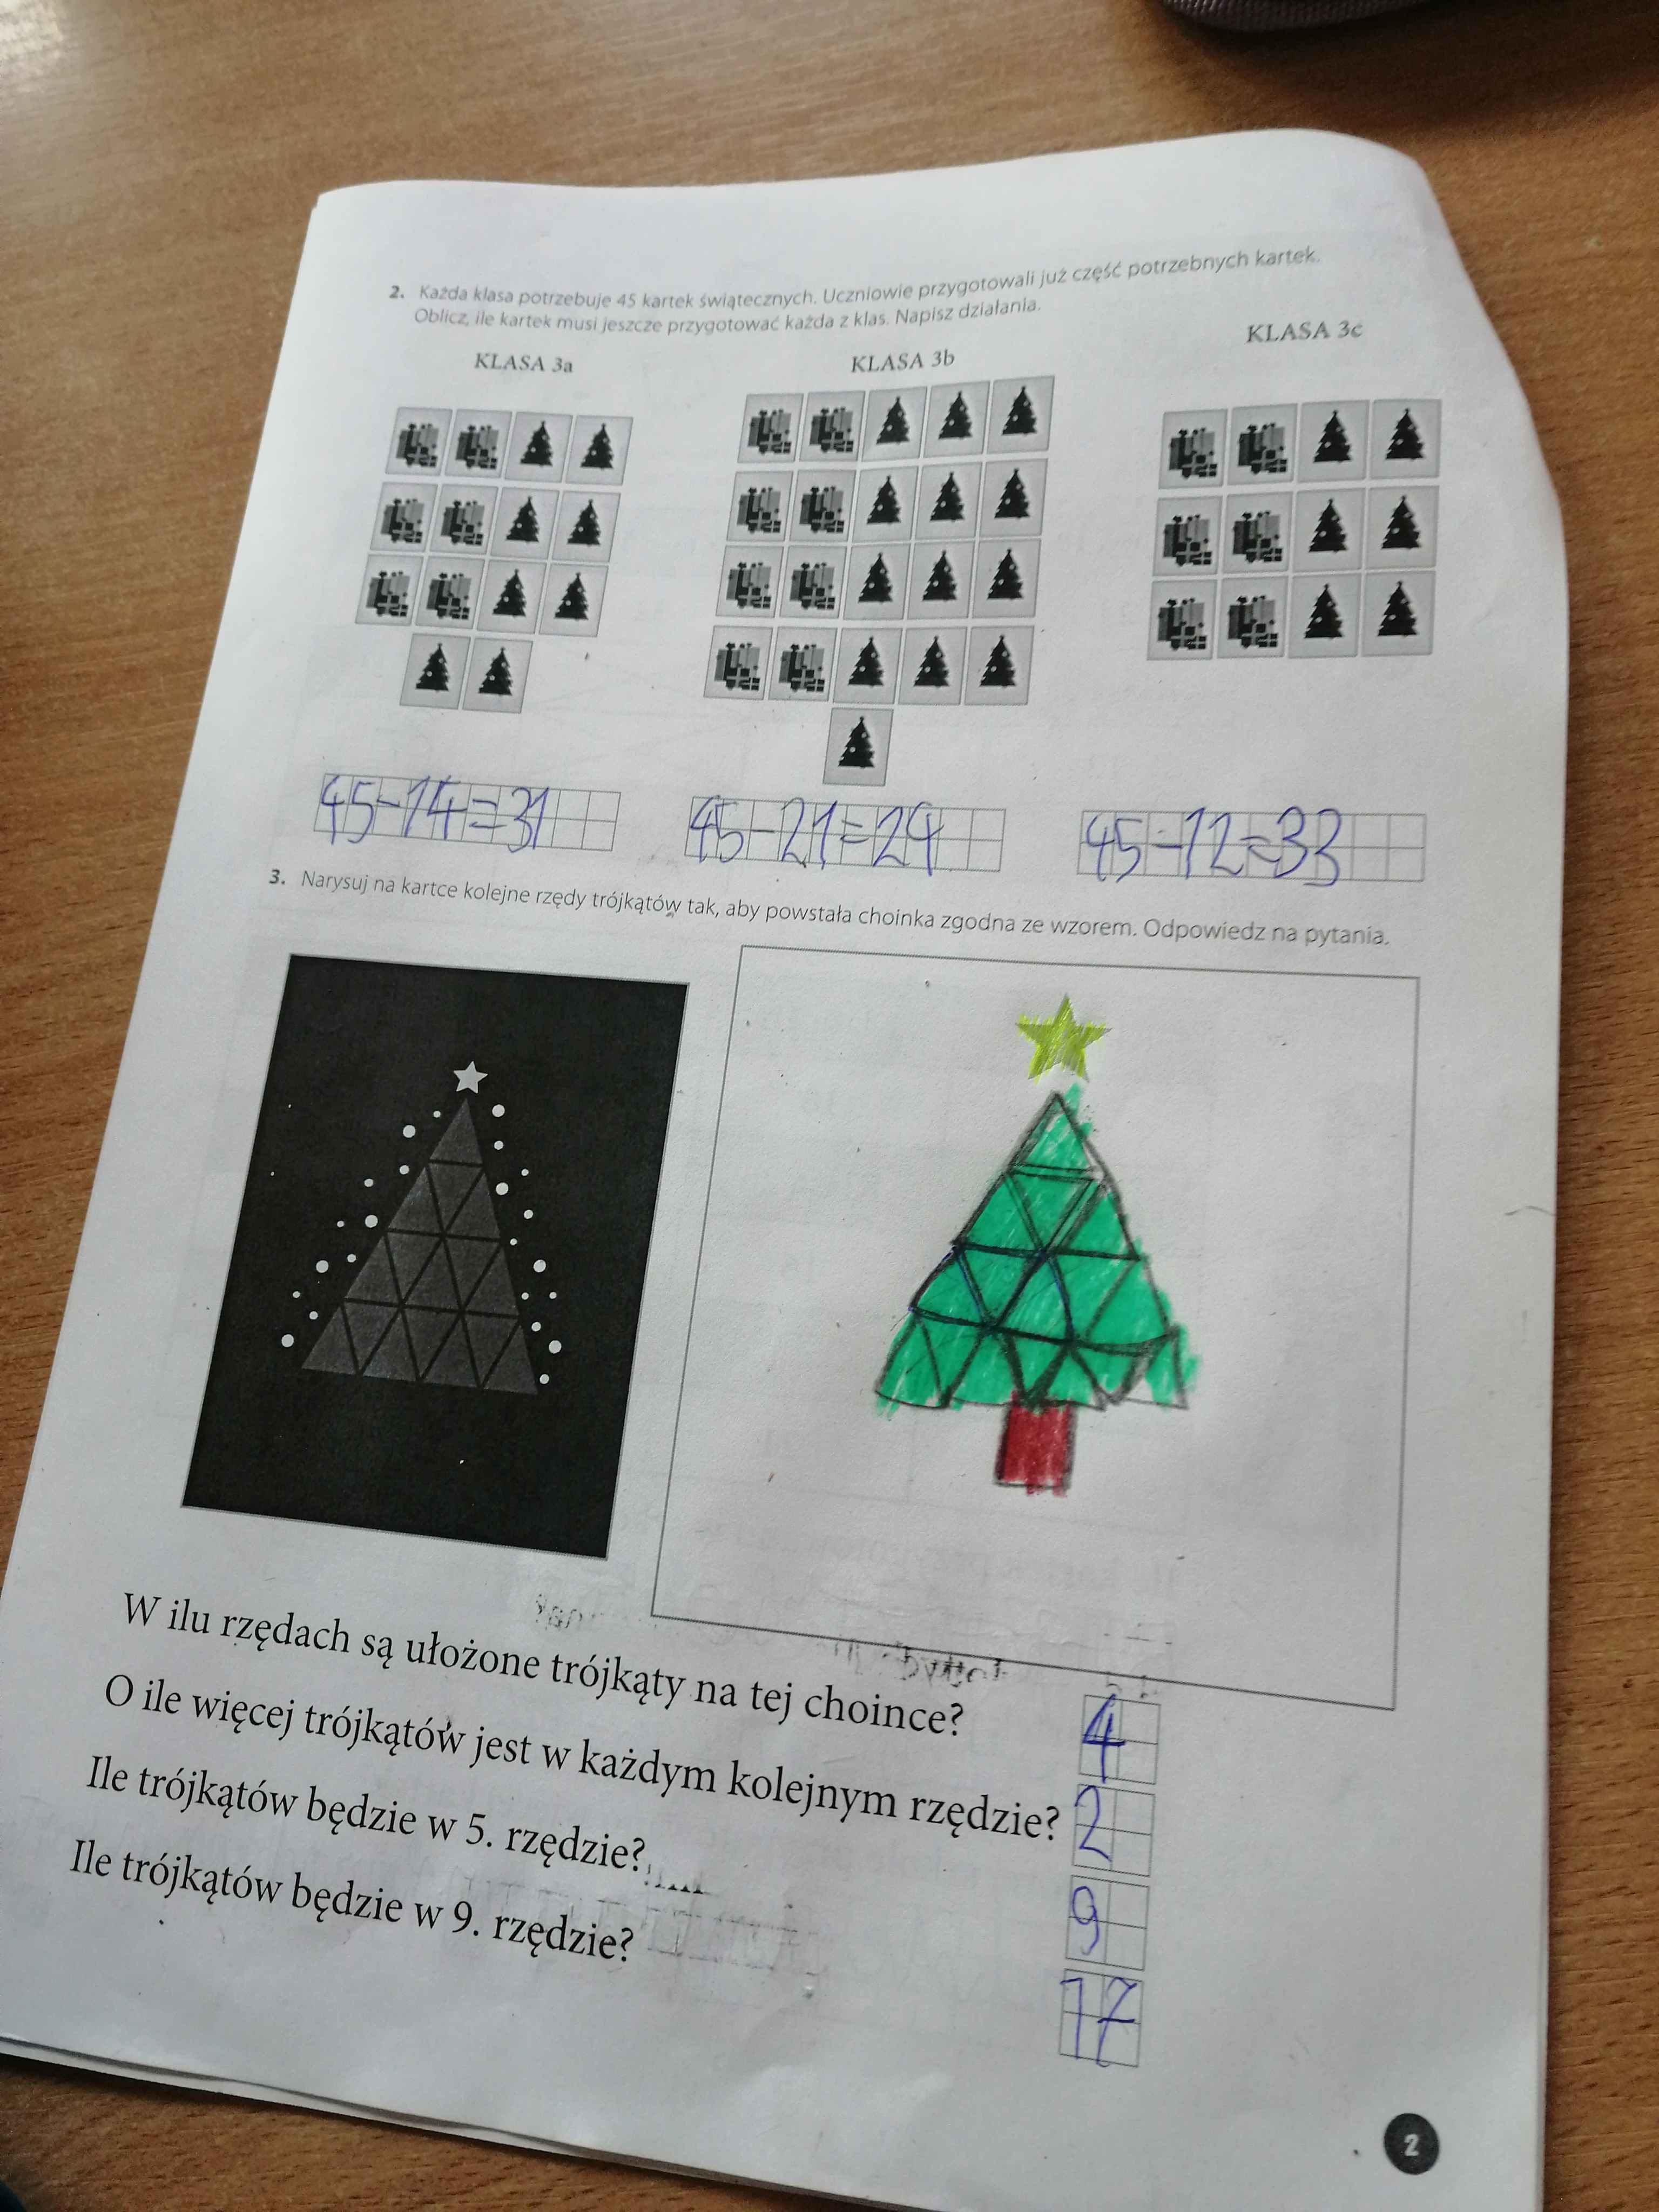 2. Każda klasa potrzebuje 45 kartek świątecznych. Uczniowie przygotowali już część potrzebnych kartek.
Oblicz, ile kartek musi jeszcze przygotować każda z klas. Napisz działania.
KLASA 3a
KLASA 3b
KLASA 3c
45-14=31
45-21=24
45-12=33
3. Narysuj na kartce kolejne rzędy trójkątów tak, aby powstała choinka zgodna ze wzorem. Odpowiedz na pytania.
W ilu rzędach są ułożone trójkąty na tej choince? 4
O ile więcej trójkątów jest w każdym kolejnym rzędzie? 2
Ile trójkątów będzie w 5. rzędzie? 9
Ile trójkątów będzie w 9. rzędzie? 17
2